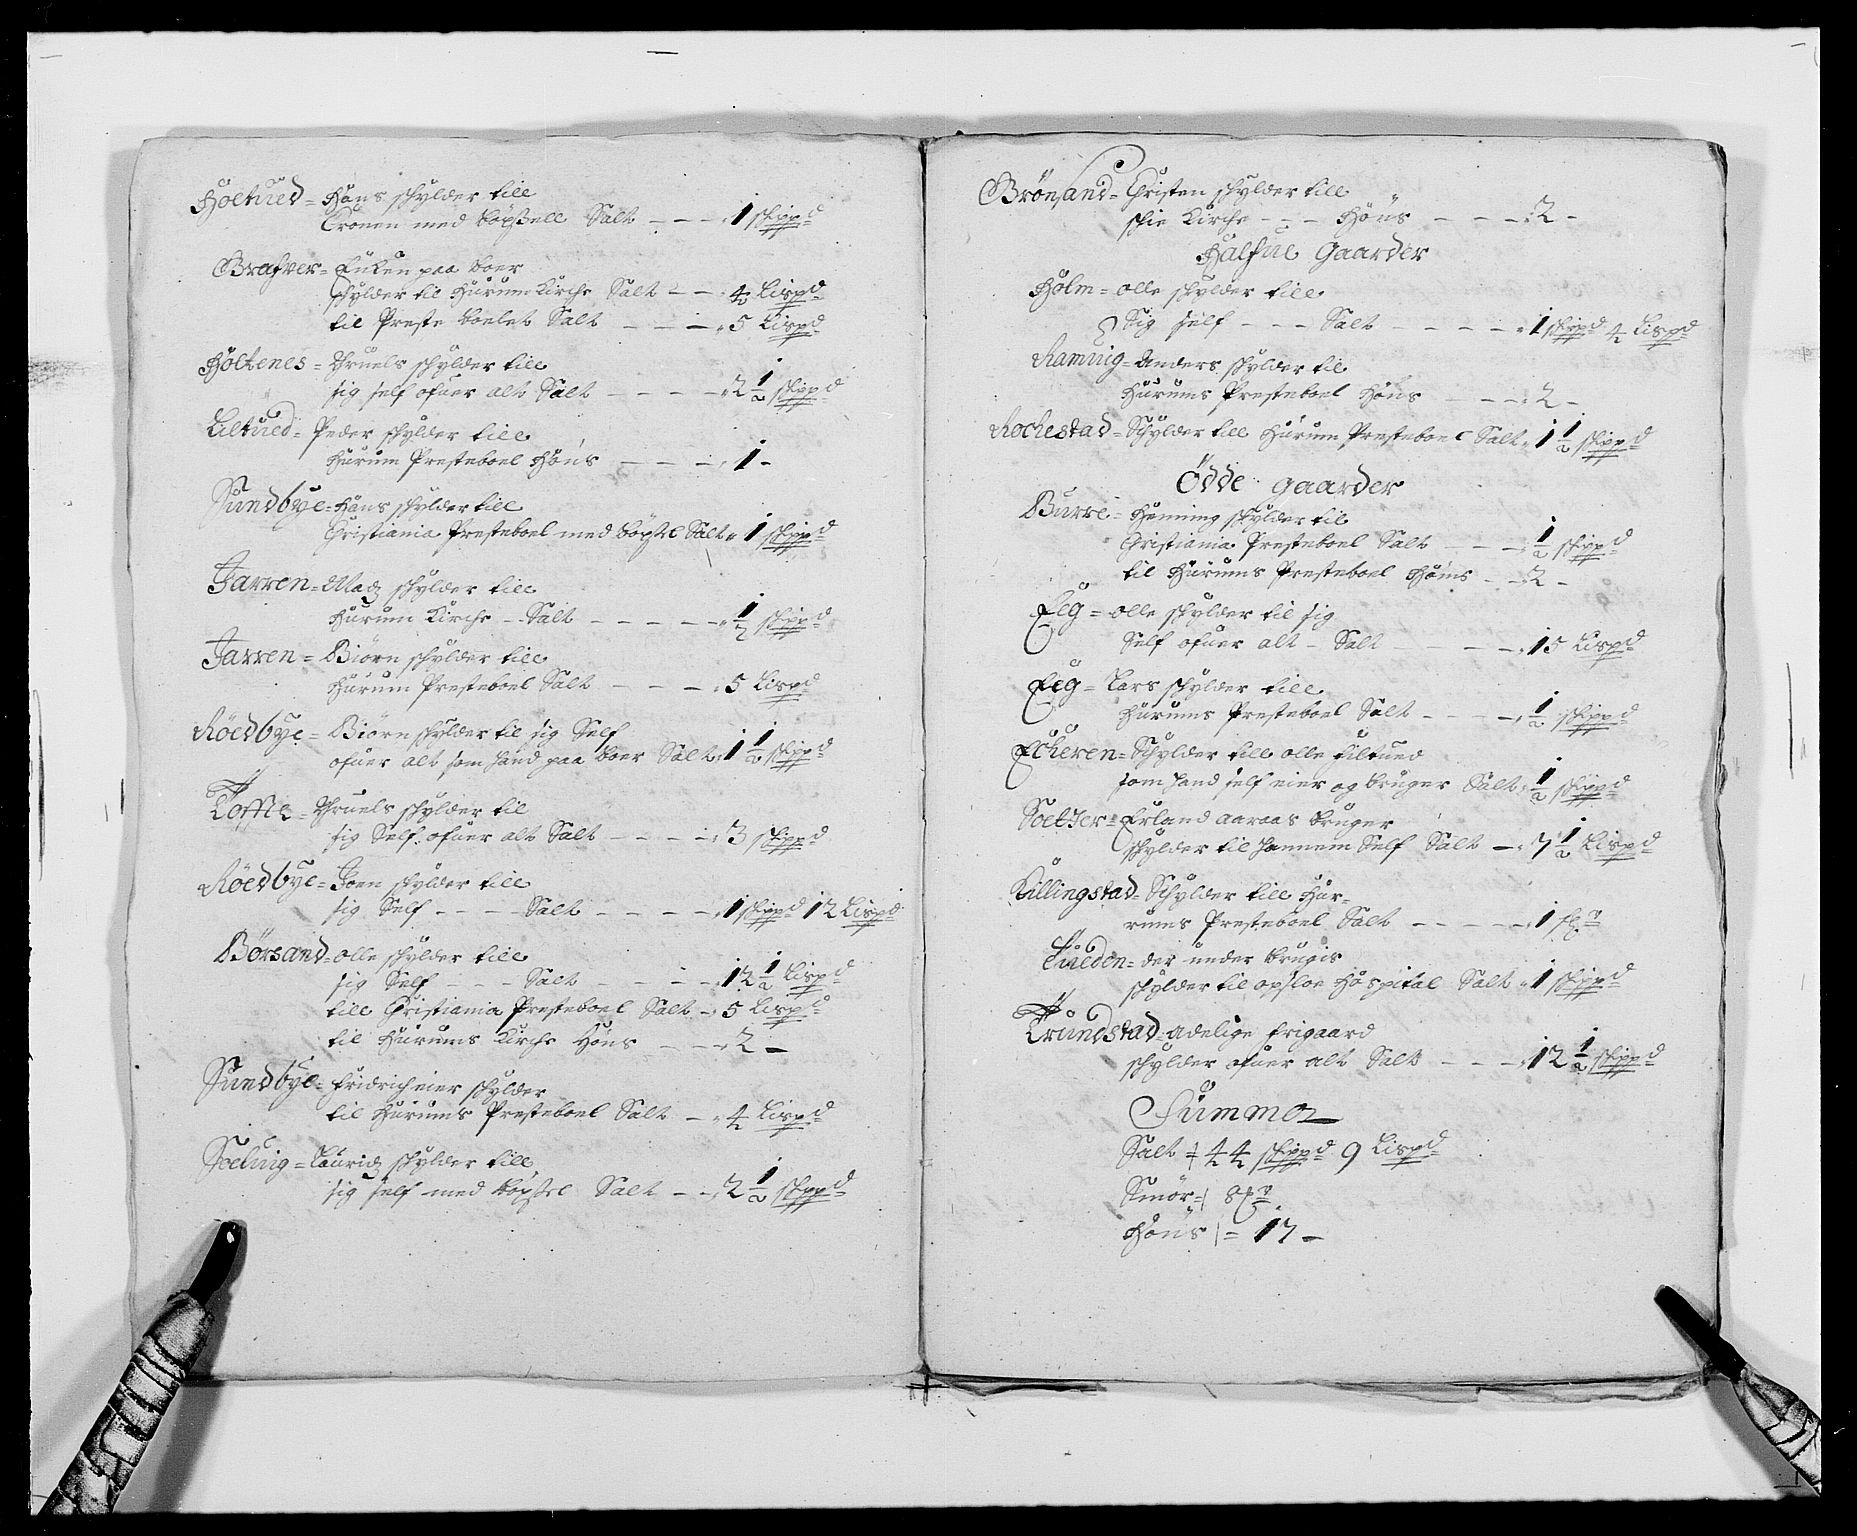 Holtued = Hans schylder till
Cronen med böxsell Salt - - - 1 skippd
Brafver = Enken paa boer
schylder til Hurum Kirche Salt - - 4 Lispd
til Preste boelet Salt - - - 5 Lispd
Holtenes = Truels schylder till
sig self ofuer alt Salt - - - - 2 1/2 skippd
Liltued = Peder schylder till
Hurum Presteboel Höns - - - - 1 -
Sundbye = Hans schylder till
Christiania Presteboel med böxsel Salt 1 skippd
Jarren = Madz schylder till
Hurum Kirche - Salt - - - - - 1/2 skippd
Jarren = Biörn schylder till
Hurum Presteboel Salt - - - 5 Lispd
Röedbye = Biörn schylder til sig Self
ofuer alt som hand paa boer Salt 1 1/2 skippd
Toffte = Truels schylder til
sig Self ofuer alt Salt - - - - 3 skippd
Röedbye = Joen schylder till
sig Self - - - - Salt - - - - 1 skippd 12 Lispd
Börsand = olle schylder till
sig Self - - - Salt - - - - 12 1/2 Lispd
till Christiania Presteboel Salt - 5 Lispd
til Hurums Kirche Höns - - - 2 -
Sundbye = fridrich eier schylder
til Hurums Presteboel Salt - 4 Lispd
Soeluig = Lauridz schylder till
sig self med böxsel Salt - - 2 1/2 skippd
Brönsand = Christen schylder till
skie Kirche - - - Höns - - - - 2 -
Halfue Gaarder
Holm = olle schylder till
Sig self - - - Salt - - - - - 1 skippd 4 Lispd
Ramuig = Anders schylder til
Hurums Presteboel Höns - - - 2 -
Rochestad = Schylder till Hurum Presteboel Salt 1 1/2 skippd
Ödde gaarder
Burre = Henning schylder til
Christiania Presteboel Salt - - - 1/2 skippd
til Hurums Presteboel Höns - - 2 -
Eeg = olle schylder til sig
Self ofuer alt - Salt - - - - 15 Lispd
Eeg = Lars schylder till
Hurums Presteboel Salt - - - - 1/2 skippd
Echeren = Schylder till olle liltued
som hand self eier og bruger Salt 1/2 skippd
Soetter = Erland aaraas bruger
schylder til hannem Self Salt - 7 1/2 Lispd
Killingstad = Schylder till Hur-
rums Presteboel Salt - - - - - 1 fr
Tueden = der under brugis
schylder til opsloe Hospital Salt 1 skippd
Trundstad = adelige frigaard
schylder ofuer alt Salt - - - 12 1/2 skippd
Summa
Salt = 44 skippd 9 Lispd
Smör = 8
Höns = 17 -